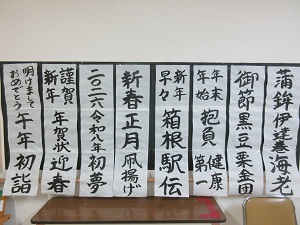 蒲鉾伊達巻海老
御節黒豆栗金団
年末年始抱負健康第一
新年早々箱根駅伝
新春正月凧揚げ
二〇二六令和八年初夢
謹賀新年年賀状迎春
明けましておめでとう午年初詣